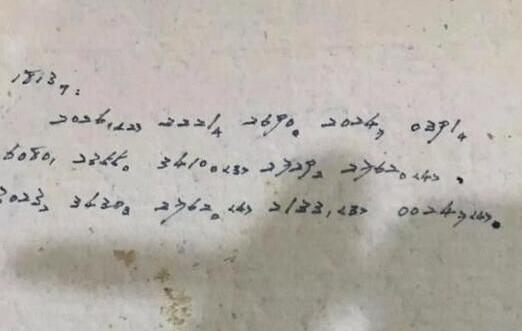 1813₇:
2026₁<2> 2221₄ 2690₀ 2024₇ 0391₄
6080₁ 3410₀<3> 2729₂ 2762₀<4>.
3023₂ 3430₃ 2762₀<4> 2133₁<3> 0024₇<4>.